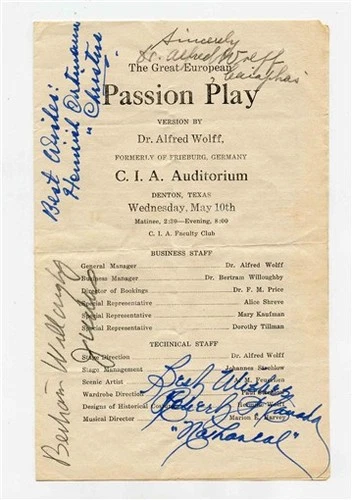 Sincerely
Dr. Alfred Wolff
"Caiaphas"
Best Wishes:
"Christus"
The Great European
Passion Play
VERSION BY
Dr. Alfred Wolff,
FORMERLY OF FRIEBURG, GERMANY
C. I. A. Auditorium
DENTON, TEXAS
Wednesday, May 10th
Matinee, 2:30—Evening, 8:00
C. I. A. Faculty Club
BUSINESS STAFF
General Manager Dr. Alfred Wolff
Business Manager Dr. Bertram Willoughby
Director of Bookings Dr. F. M. Price
Special Representative Alice Shreve
Special Representative Mary Kaufman
Special Representative Dorothy Tillman
Bertram Willoughby
TECHNICAL STAFF
Stage Direction Dr. Alfred Wolff
Stage Management Johannes
Scenic Artist
Wardrobe Direction Paul
Designs of Historical
Musical Director Marion E. Harvey
Best Wishes
"Nathaneal"